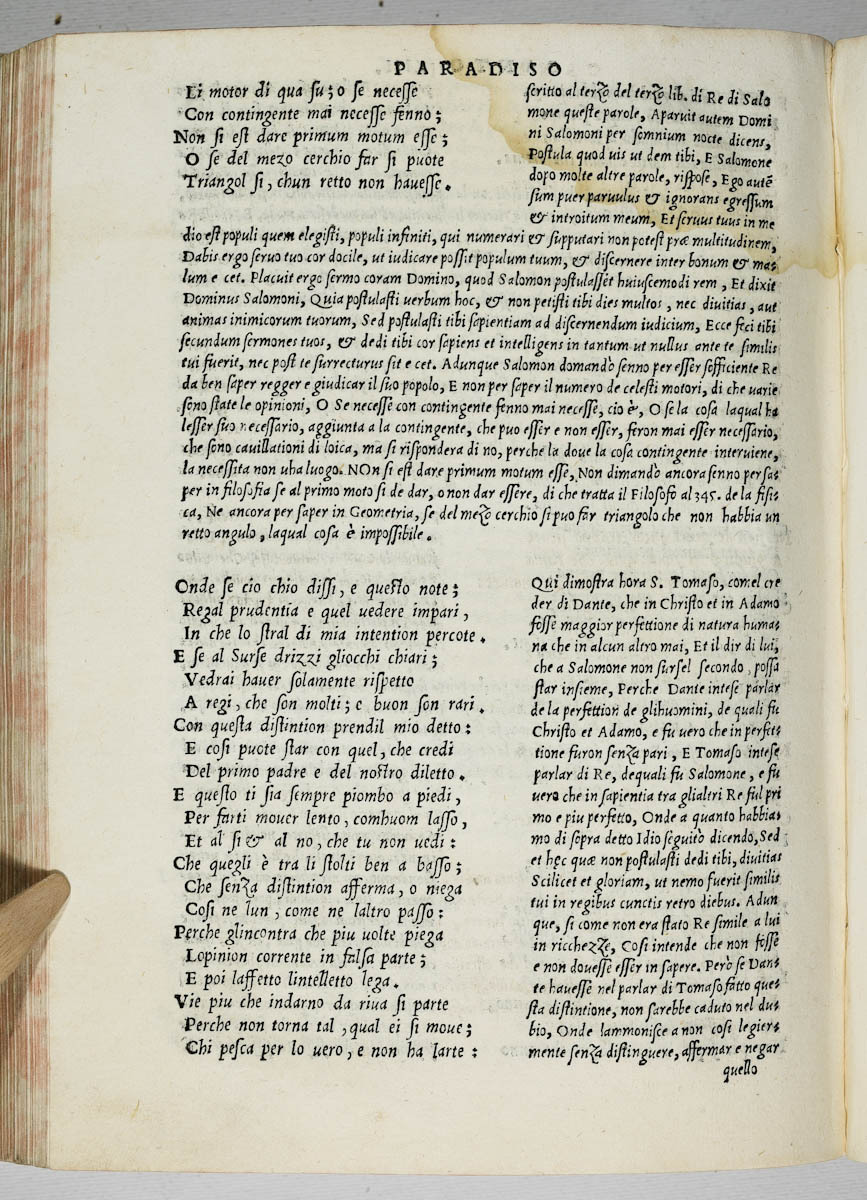 PARADISO
Li motor di qua su; o se necesse
Con contingente mai necesse fenno;
Non si est dare primum motum esse;
O se del mezo cerchio far si puote
Triangol si, chun retto non havesse.
scritto al terzo del terzo lib. di Re di Salo
mone queste parole, Aparuit autem Domi
ni Salomoni per somnium nocte dicens,
Postula quod uis ut dem tibi, E Salomone
dopo molte altre parole, rispose, Ego autẽ
sum puer paruulus & ignorans egressum
& introitum meum, Et seruus tuus in me
dio est populi quem elegisti, populi infiniti, qui numerari & supputari non potest præ multitudinem,
Dabis ergo seruo tuo cor docile, ut iudicare possit populum tuum, & discernere inter bonum & ma⸗
lum e cet. Placuit ergo sermo coram Domino, quod Salomon postulasset huiuscemodi rem, Et dixit
Dominus Salomoni, Quia postulasti uerbum hoc, & non petisti tibi dies multos, nec diuitias, aut
animas inimicorum tuorum, Sed postulasti tibi sapientiam ad discernendum iudicium, Ecce feci tibi
secundum sermones tuos, & dedi tibi cor sapiens et intelligens in tantum ut nullus ante te similis
tui fuerit, nec post te surrecturus sit e cet. Adunque Salomon domandò senno per esser sofficiente Re
da ben saper regger e giudicar il suo popolo, E non per saper il numero de celesti motori, di che uarie
sono state le opinioni, O Se necesse con contingente fenno mai necesse, cio è, O se la cosa laqual ha
lesser suo necessario, aggiunta a la contingente, che puo esser e non esser, feron mai esser necessario,
che sono cauillationi di loica, ma si rispondera di no, perche la doue la cosa contingente interuiene,
la necessita non uha luogo. NOn si est dare primum motum esse, Non dimandò ancora senno per sa⸗
per in filosofia se al primo moto si de dar, o non dar essere, di che tratta il Filosofo al 345. de la fisi⸗
ca, Ne ancora per saper in Geometria, se del mezo cerchio si puo far triangolo che non habbia un
retto angulo, laqual cosa è impossibile.
Onde se cio chio dissi, e questo note;
Regal prudentia e quel uedere impari,
In che lo stral di mia intention percote.
E se al Surse drizzi gliocchi chiari;
Vedrai hauer solamente rispetto
A regi, che son molti; e buon son rari.
Con questa distintion prendil mio detto:
E cosi puote star con quel, che credi
Del primo padre e del nostro diletto.
E questo ti sia sempre piombo a piedi,
Per farti mouer lento, comhuom lasso,
Et al si & al no, che tu non uedi:
Che quegli è tra li stolti ben a basso;
Che senza distintion afferma, o niega
Cosi ne lun, come ne laltro passo:
Perche glincontra che piu uolte piega
Lopinion corrente in falsa parte;
E poi laffetto lintelletto lega.
Vie piu che indarno da riua si parte
Perche non torna tal, qual ei si moue;
Chi pesca per lo uero, e non ha larte:
Qui dimostra hora S. Tomaso, comel cre
der di Dante, che in Christo et in Adamo
fosse maggior perfettione di natura huma⸗
na che in alcun altro mai, Et il dir di lui,
che a Salomone non sursel secondo, possa
star insieme, Perche Dante intese parlar
de la perfettion de glihuomini, de quali fu
Christo et Adamo, e fu uero che in perfet⸗
tione furon senza pari, E Tomaso intese
parlar di Re, dequali fu Salomone, e fu
uero che in sapientia tra glialtri Re ful pri
mo e piu perfetto, Onde a quanto habbia⸗
mo di sopra detto Idio seguitò dicendo, Sed
et hęc quæ non postulasti dedi tibi, diuitias
Scilicet et gloriam, ut nemo fuerit similis
tui in regibus cunctis retro diebus. Adun
que, si come non era stato Re simile a lui
in ricchezze, Cosi intende che non fosse
e non douesse esser in sapere. Però se Dan⸗
te hauesse nel parlar di Tomaso fatto que⸗
sta distintione, non sarebbe caduto nel du⸗
bio, Onde lammonisce a non cosi legier⸗
mente senza distinguere, affermar e negar
quello